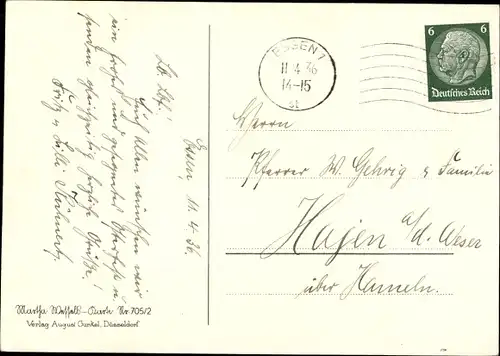 Essen, 11. 4. 36.
Euch Allen wünschen wir
ein frohes und gesegnetes Osterfest u.
senden gleichzeitig herzliche Grüße!
Fritz u. Lilli
ESSEN 1
11 4 36
14-15
6 6
Deutsches Reich
Herrn
Pfarrer W. Gehrig u Familie
Hajen a/d. Weser
über Hameln.
Karte Nr. 705/2
Verlag August Gunkel, Düsseldorf